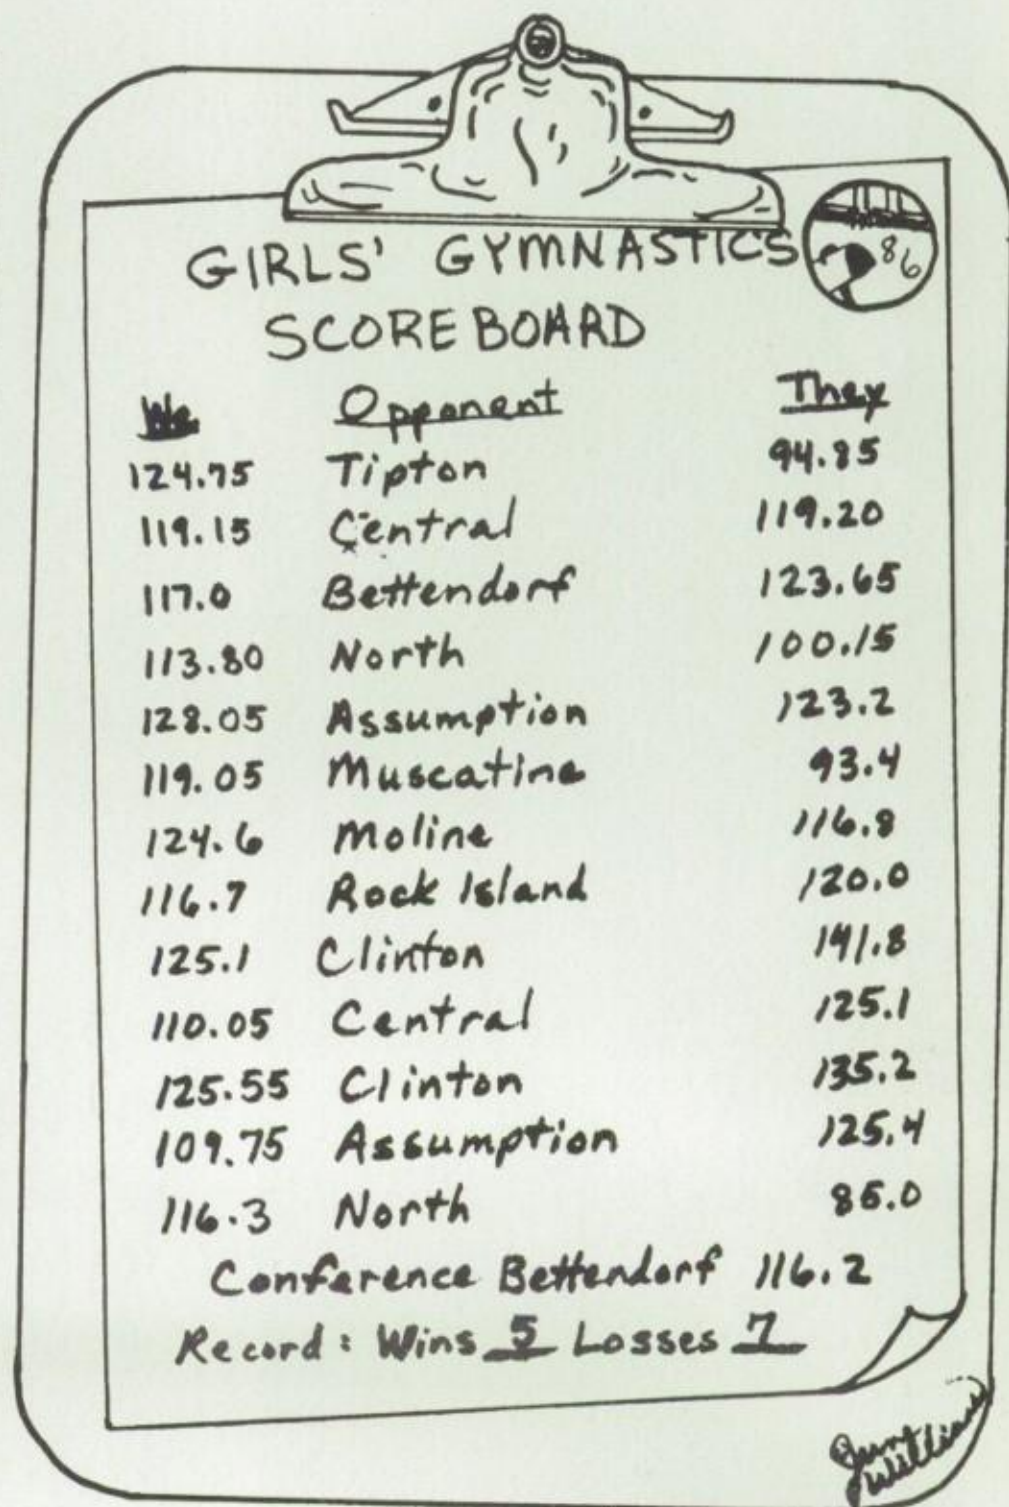 GIRLS' GYMNASTICS
86
SCOREBOARD
We Opponent They
124.75 Tipton 94.85
119.15 Central 119.20
117.0 Bettendorf 123.65
113.80 North 100.15
128.05 Assumption 123.2
119.05 Muscatine 93.4
124.6 Moline 116.8
116.7 Rock Island 120.0
125.1 Clinton 141.8
110.05 Central 125.1
125.55 Clinton 135.2
109.75 Assumption 125.4
116.3 North 86.0
Conference Bettendorf 116.2
Record: Wins 5 Losses 7
Williams